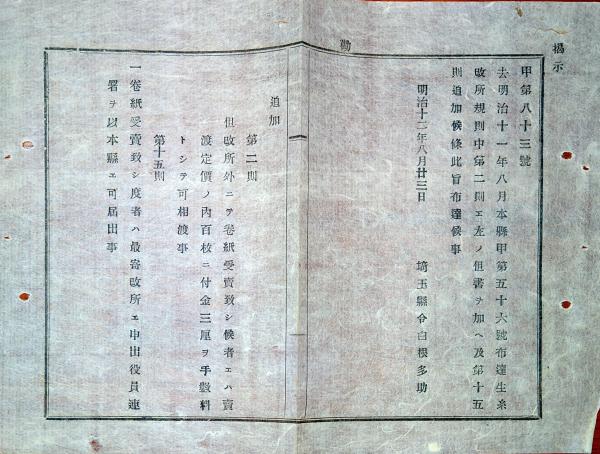 揭示
甲第八十三號
去明治十一年八月本縣甲第五十六號布達生糸
改所規則中第二則エ左ノ但書ヲ加ヘ及第十五
則追加候條此旨布達候事
明治十二年八月廿三日
埼玉縣令白根多助
勸
追加
第二則
但改所外ニテ卷紙受賣致シ候者エハ賣
渡定價ノ内百枚ニ付金三厘ヲ手數料
トシテ可相渡事
第十五則
一卷紙受賣致シ度者ハ最寄改所エ申出役員連
署ヲ以本縣エ可屆出事